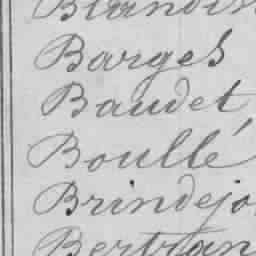 Barges
Baudet
Boullé
Brindejo
Bertran